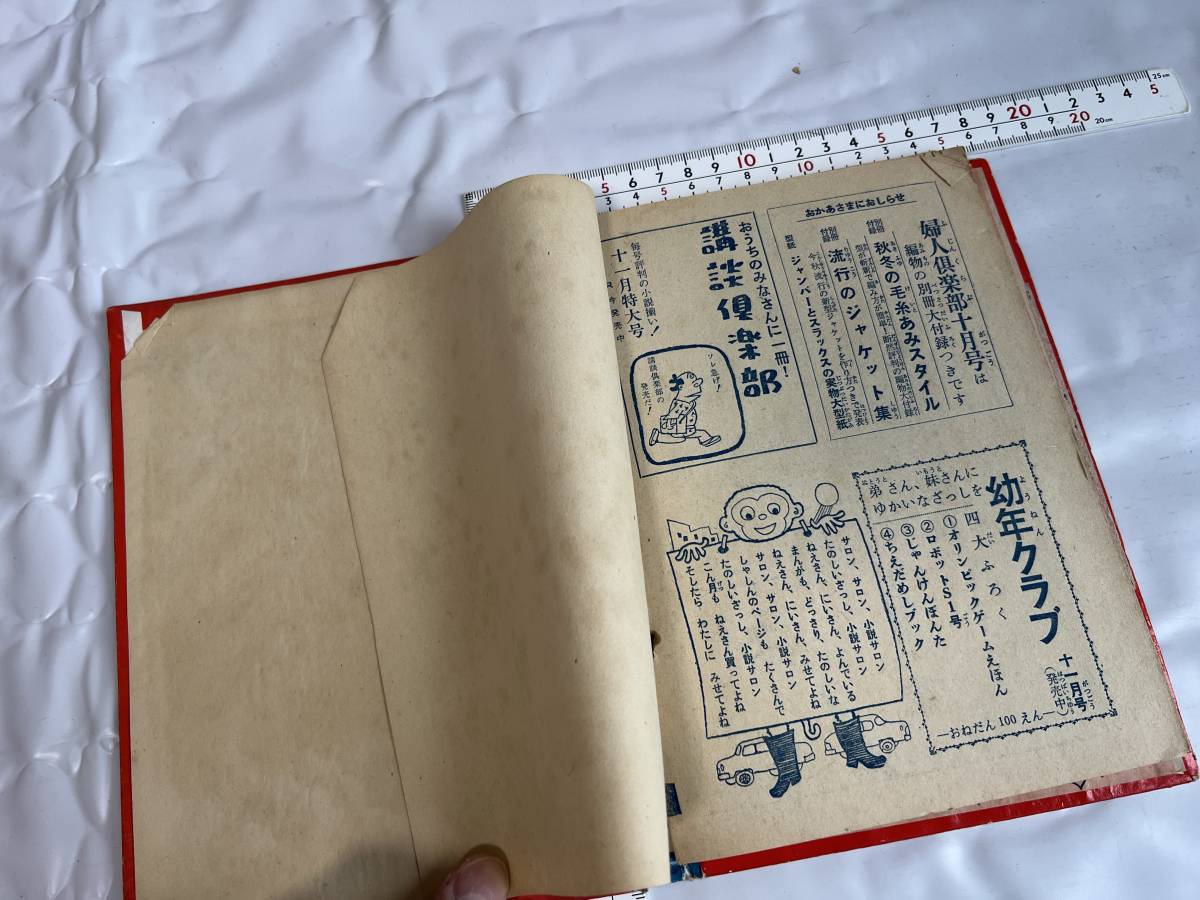 おかあさまにおしらせ
婦人倶楽部十月号は
編物の別冊大付録つきです
別冊付録
秋冬の毛糸あみスタイル
型が斬新で編み方が簡単!断然評判の編物大付録
別冊付録
流行のジャケット集
今秋流行の新型ジャケットを作り方つきで発表
型紙
ジャンパーとスラックスの実物大型紙
おうちのみなさんに一冊!
講談倶楽部
毎号評判の小説揃い!
十一月特大号
今発売中
ソレ急げ!
講談倶楽部の
発売だ!
幼年クラブ
十一月号
(発売中)
弟さん、妹さんに
ゆかいなざっしを
四大ふろく
①オリンピックゲームえほん
②ロボットS1号
③じゃんけんぽんた
④ちえだめしブック
―おねだん100えん―
サロン、サロン、小説サロン
たのしいざっし、小説サロン
ねえさん、にいさん、よんでいる
まんがも、どっさり、たのしいな
ねえさん、にいさん、みせてよね
サロン、サロン、小説サロン
しゃしんのページも たくさんで
たのしいざっし、小説サロン
こん月も ねえさん買ってよね
そしたら わたしに みせてよね
5 6 7 8 9 10 1 2 3 4 5 6 7 8 9 20 1 2 3 4 5
25cm
20cm